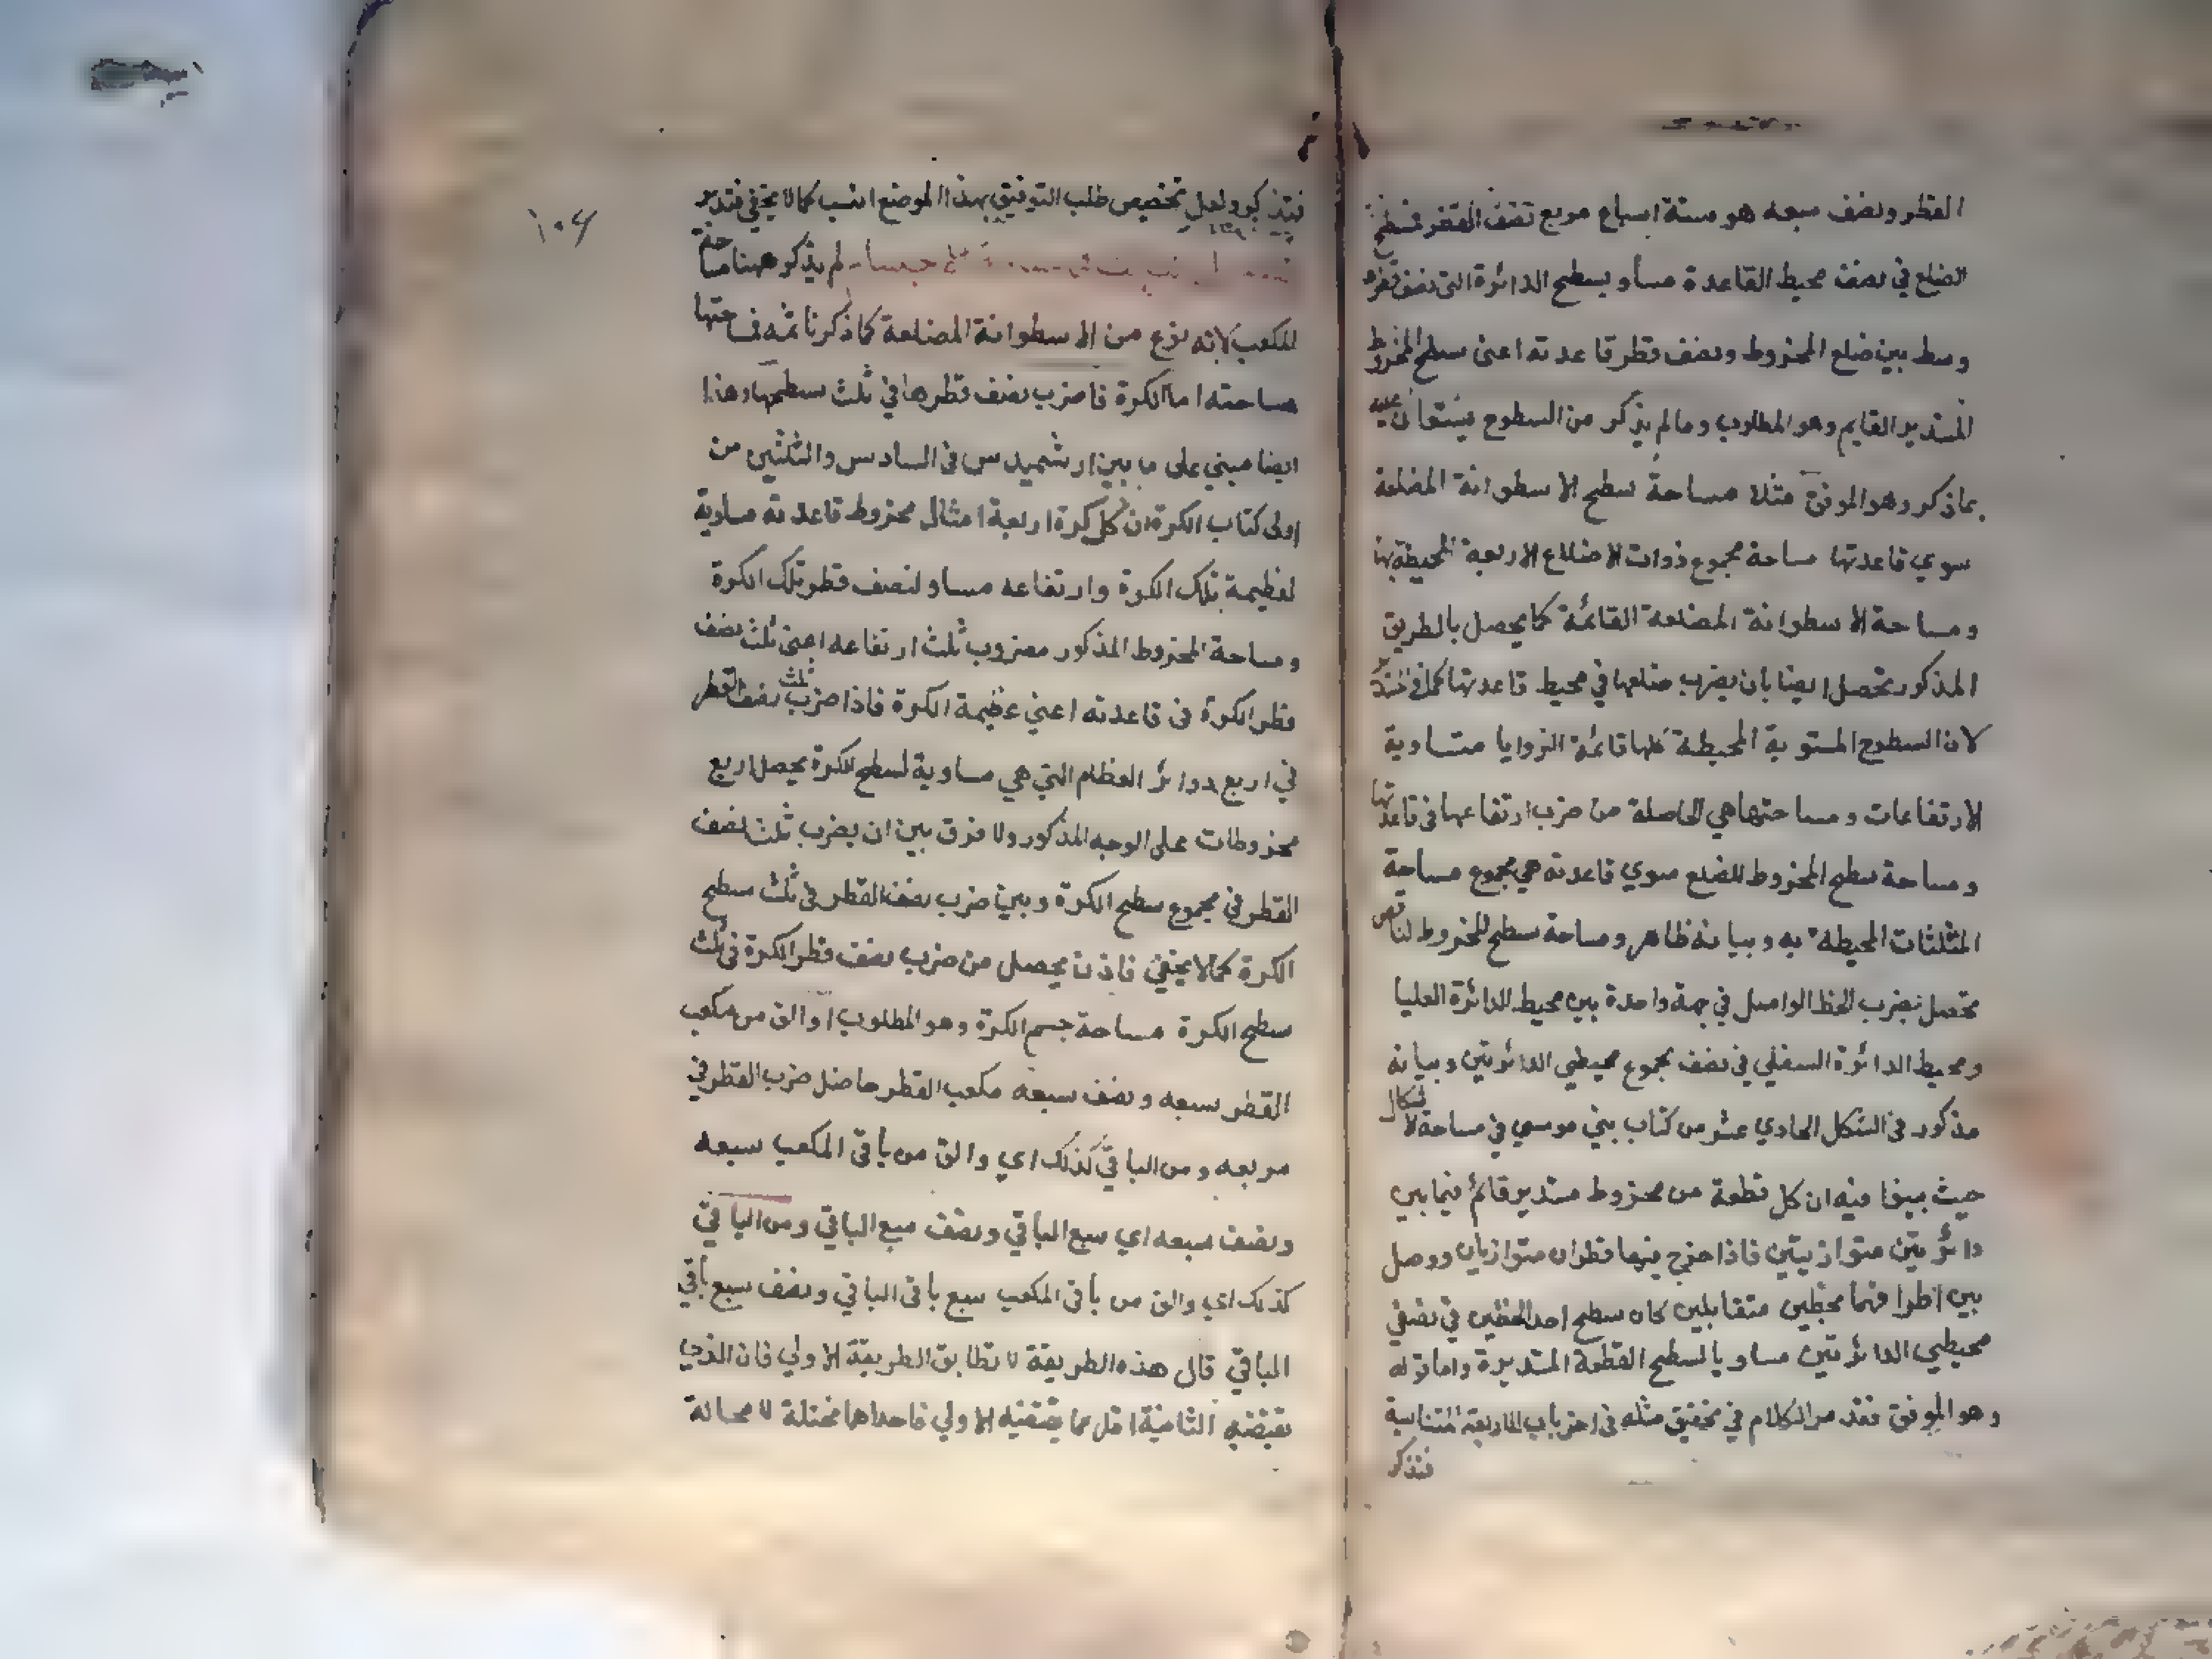 القطر ونصف سبعه هو ستة اسباع مربع نصف القطر فسطح
الضلع في نصف محيط القاعدة مساو بسطح الدائرة التى نصف قطره
وسط بين ضلع المخروط ونصف قطر قاعدته اعنى سطح المخروط
المستدير القايم وهو المطلوب وما لم يذكر من السطوح يستعان عليه
بما ذكر وهو الموفق مثلا مساحة سطح الاسطوانة المضلعة
سوي قاعدتها مساحة مجموع ذوات الاضلاع الاربعة المحيطة بها
ومساحة الاسطوانة المضلعة القائمة كما يحصل بالطريق
المذكور تحصل ايضا بان يضرب ضلعها في محيط قاعدتها كما في
لان السطوح المستوية المحيطة كلها قائمة الزوايا متساوية
الارتفاعات ومساحتها هي الحاصلة من ضرب ارتفاعها في قاعدتها
ومساحة سطح المخروط المضلع سوي قاعدته هي مجموع مساحة
المثلثات المحيطة به وبيانه ظاهر ومساحة سطح المخروط الناقص
تحصل بضرب الخط الواصل في جهة واحدة بين محيط الدائرة العليا
ومحيط الدائرة السفلي في نصف مجموع محيطي الدائرتين وبيانه
مذكور في الشكل الحادي عشر من كتاب بني موسي في مساحة الاشكال
حيث بينوا فيه ان كل قطعة من مخروط مستدير قائم فيما بين
دائرتين متوازيتين فاذا خرج فيها قطران متوازيان ووصل
بين اطرافهما بخطين متقابلين كان سطح احد الخطين في نصفي
محيطي الدائرتين مساويا لسطح القطعة المستديرة واما قوله
وهو الموفق فقد مر الكلام في تحقيق مثله في اخر باب الاربعة المتناسبة
فتذكر
١٠٤
فتذكر ولعل تخصيص طلب التوفيق بهذا الموضع انسب كما لا يخفي فتدبر
لم يذكر ههنا مساحة
المكعب لانه نوع من الاسطوانة المضلعة كما ذكرنا ثمه فمساحتها
مساحته اما الكرة فاضرب نصف قطرها في ثلث سطحها وهذا
ايضا مبني على ما بين ارشميدس في السادس والثلثين من
اولى كتاب الكرة ان كل كرة اربعة امثال مخروط قاعدته مساوية
لعظيمة تلك الكرة وارتفاعه مساو لنصف قطر تلك الكرة
ومساحة المخروط المذكور مضروب ثلث ارتفاعه اعنى ثلث نصف
قطر الكرة في قاعدته اعني عظيمة الكرة فاذا ضرب ثلث نصف القطر
في اربع دوائر العظام التي هي مساوية لسطح الكرة يحصل اربع
مخروطات على الوجه المذكور ولا فرق بين ان يضرب ثلث نصف
القطر في مجموع سطح الكرة وبين ضرب نصف القطر في ثلث سطح
الكرة كما لا يخفي فاذن يحصل من ضرب نصف قطر الكرة في ثلث
سطح الكرة مساحة جسم الكرة وهو المطلوب او الق من مكعب
القطر سبعه ونصف سبعه مكعب القطر حاصل ضرب القطر في
مربعه ومن الباقي كذلك اي والق من باقى المكعب سبعه
ونصف سبعه اي سبع الباقي ونصف سبع الباقي ومن الباقي
كذلك اي والق من باقى المكعب سبع باقى الباقي ونصف سبع باقي
الباقي قال هذه الطريقة لا تطابق الطريقة الاولي فان الذي
تقتضيه الثانية اقل مما يقتضيه الاولي فاحداهما مختلة لا محالة